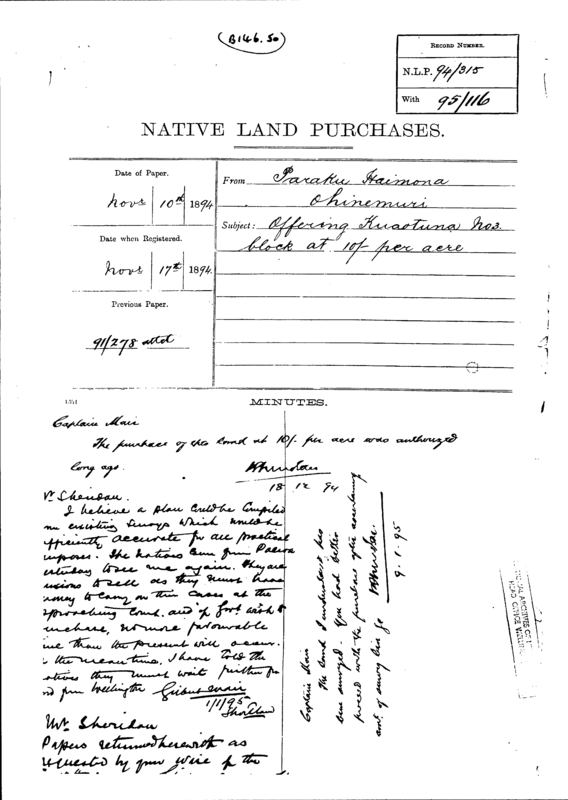 (B146.50)
RECORD NUMBER.
N.L.P. 94/315
With 95/116
NATIVE LAND PURCHASES.
Date of Paper.
Novr 10th 1894
Date when Registered.
Novr 17th 1894.
Previous Paper.
91/278 attd
From Paraku Haimona
Ohinemuri
Subject: Offering Kuaotuna No3.
block at 10/- per acre
MINUTES.
Captain Mair
The purchase of this land at 10/- per acre was authorized
long ago.
PSheridan
18 12 94
Mr Sheridan.
I believe a plan could be compiled
existing surveys which would be
sufficiently accurate for all practical
purposes. The Natives came from Paeroa
yesterday to see me again. They are
anxious to sell as they must have
money to carry on their cases at the
approaching Court. and if Govt wish to
purchase, no more favourable
time than the present will occur.
In the meantime, I have told the
natives they must wait further
word from Wellington Gilbert Mair
1/1/95
Shortland
Mr Sheridan
Papers returned herewith as
requested by your wire of the
Captain Mair
The land I understand has
been surveyed. You had better
proceed with the purchase after ascertaining
cost of survey lien &c
PSheridan.
9.1.95
HEAD OFFICE